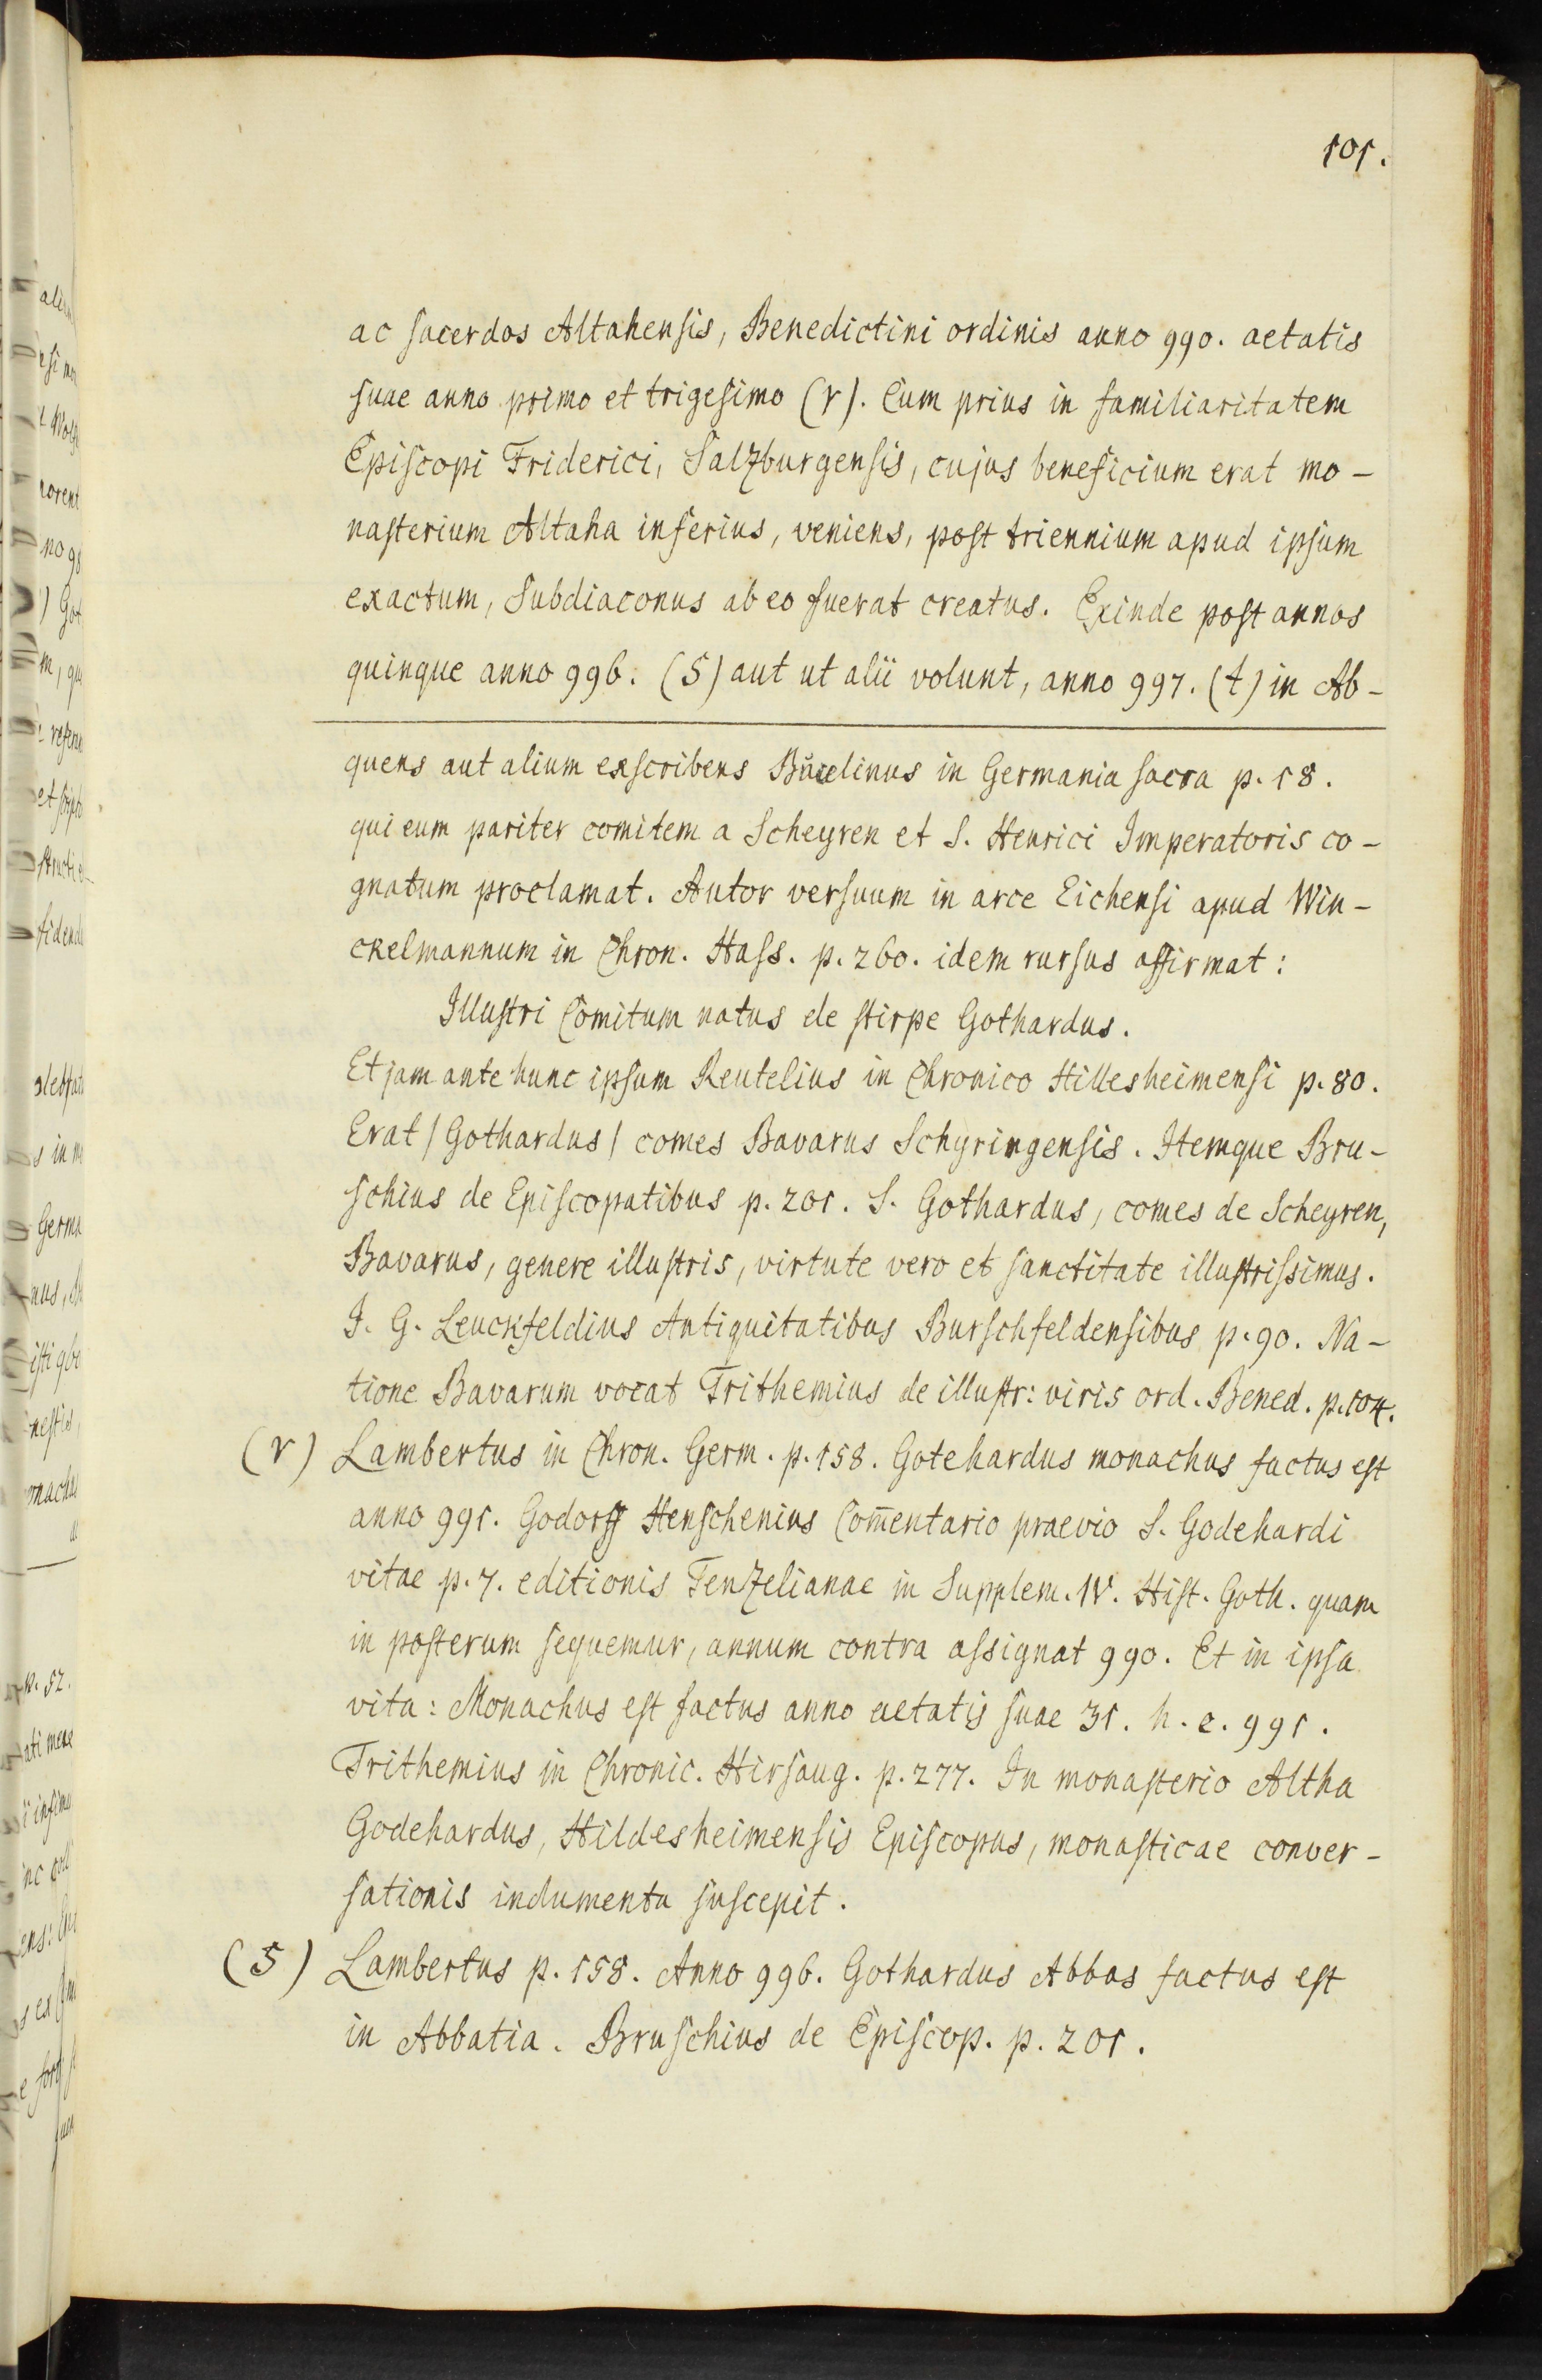 101.
ac sacerdos Altahensis, Benedictini ordinis anno 990. aetatis
suae anno primo et trigesimo (r). Cum prius in familiaritatem
Episcopi Friderici, Salzburgensis, cujus beneficium erat mo-
nasterium Altaha inferius, veniens, post triennium apud ipsum
exactum, Subdiaconus ab eo fuerat creatus. Exinde post annos
quinque anno 996. (s) aut ut alii volunt, anno 997. (t) in Ab-
quens aut alium exscribens Bucelinus in Germania sacra p. 18.
qui eum pariter comitem a Scheyren et S. Henrici Imperatoris co-
gnatum proclamat. Autor versuum in arce Eichensi apud Win-
ckelmannum in Chron. Hass. p. 260. idem rursus affirmat:
Illustri Comitum natus de stirpe Gothardus.
Et jam ante hunc ipsum Reutelius in Chronico Hillesheimensi p. 80.
Erat / Gothardus / comes Bavarus Schyringensis. Itemque Bru-
schius de Episcopatibus p. 201. S. Gothardus, comes de Scheyren,
Bavarus, genere illustris, virtute vero et sanctitate illustrissimus.
J. G. Leuckfeldius Antiquitatibus Burschfeldensibus p. 90. Na-
tione Bavarum vocat Trithemius de illustr: viris ord. Bened. p. 104.
(r) Lambertus in Chron. Germ. p. 158. Gotehardus monachus factus est
anno 991. Godorff Henschenius Com̄entario praevio S. Godehardi
vitae p. 7. editionis Tenzelianae in Supplem. IV. Hist. Goth. quam
in posterum sequemur, annum contra assignat 990. Et in ipsa
vita: Monachus est factus anno aetatis suae 31. h. e. 991.
Trithemius in Chronic. Hirsaug. p. 277. In monasterio Altha
Godehardus, Hildesheimensis Episcopus, monasticae conver-
sationis indumenta suscepit.
(s) Lambertus p. 158. Anno 996. Gothardus Abbas factus est
in Abbatia. Bruschius de Episcop. p. 201.